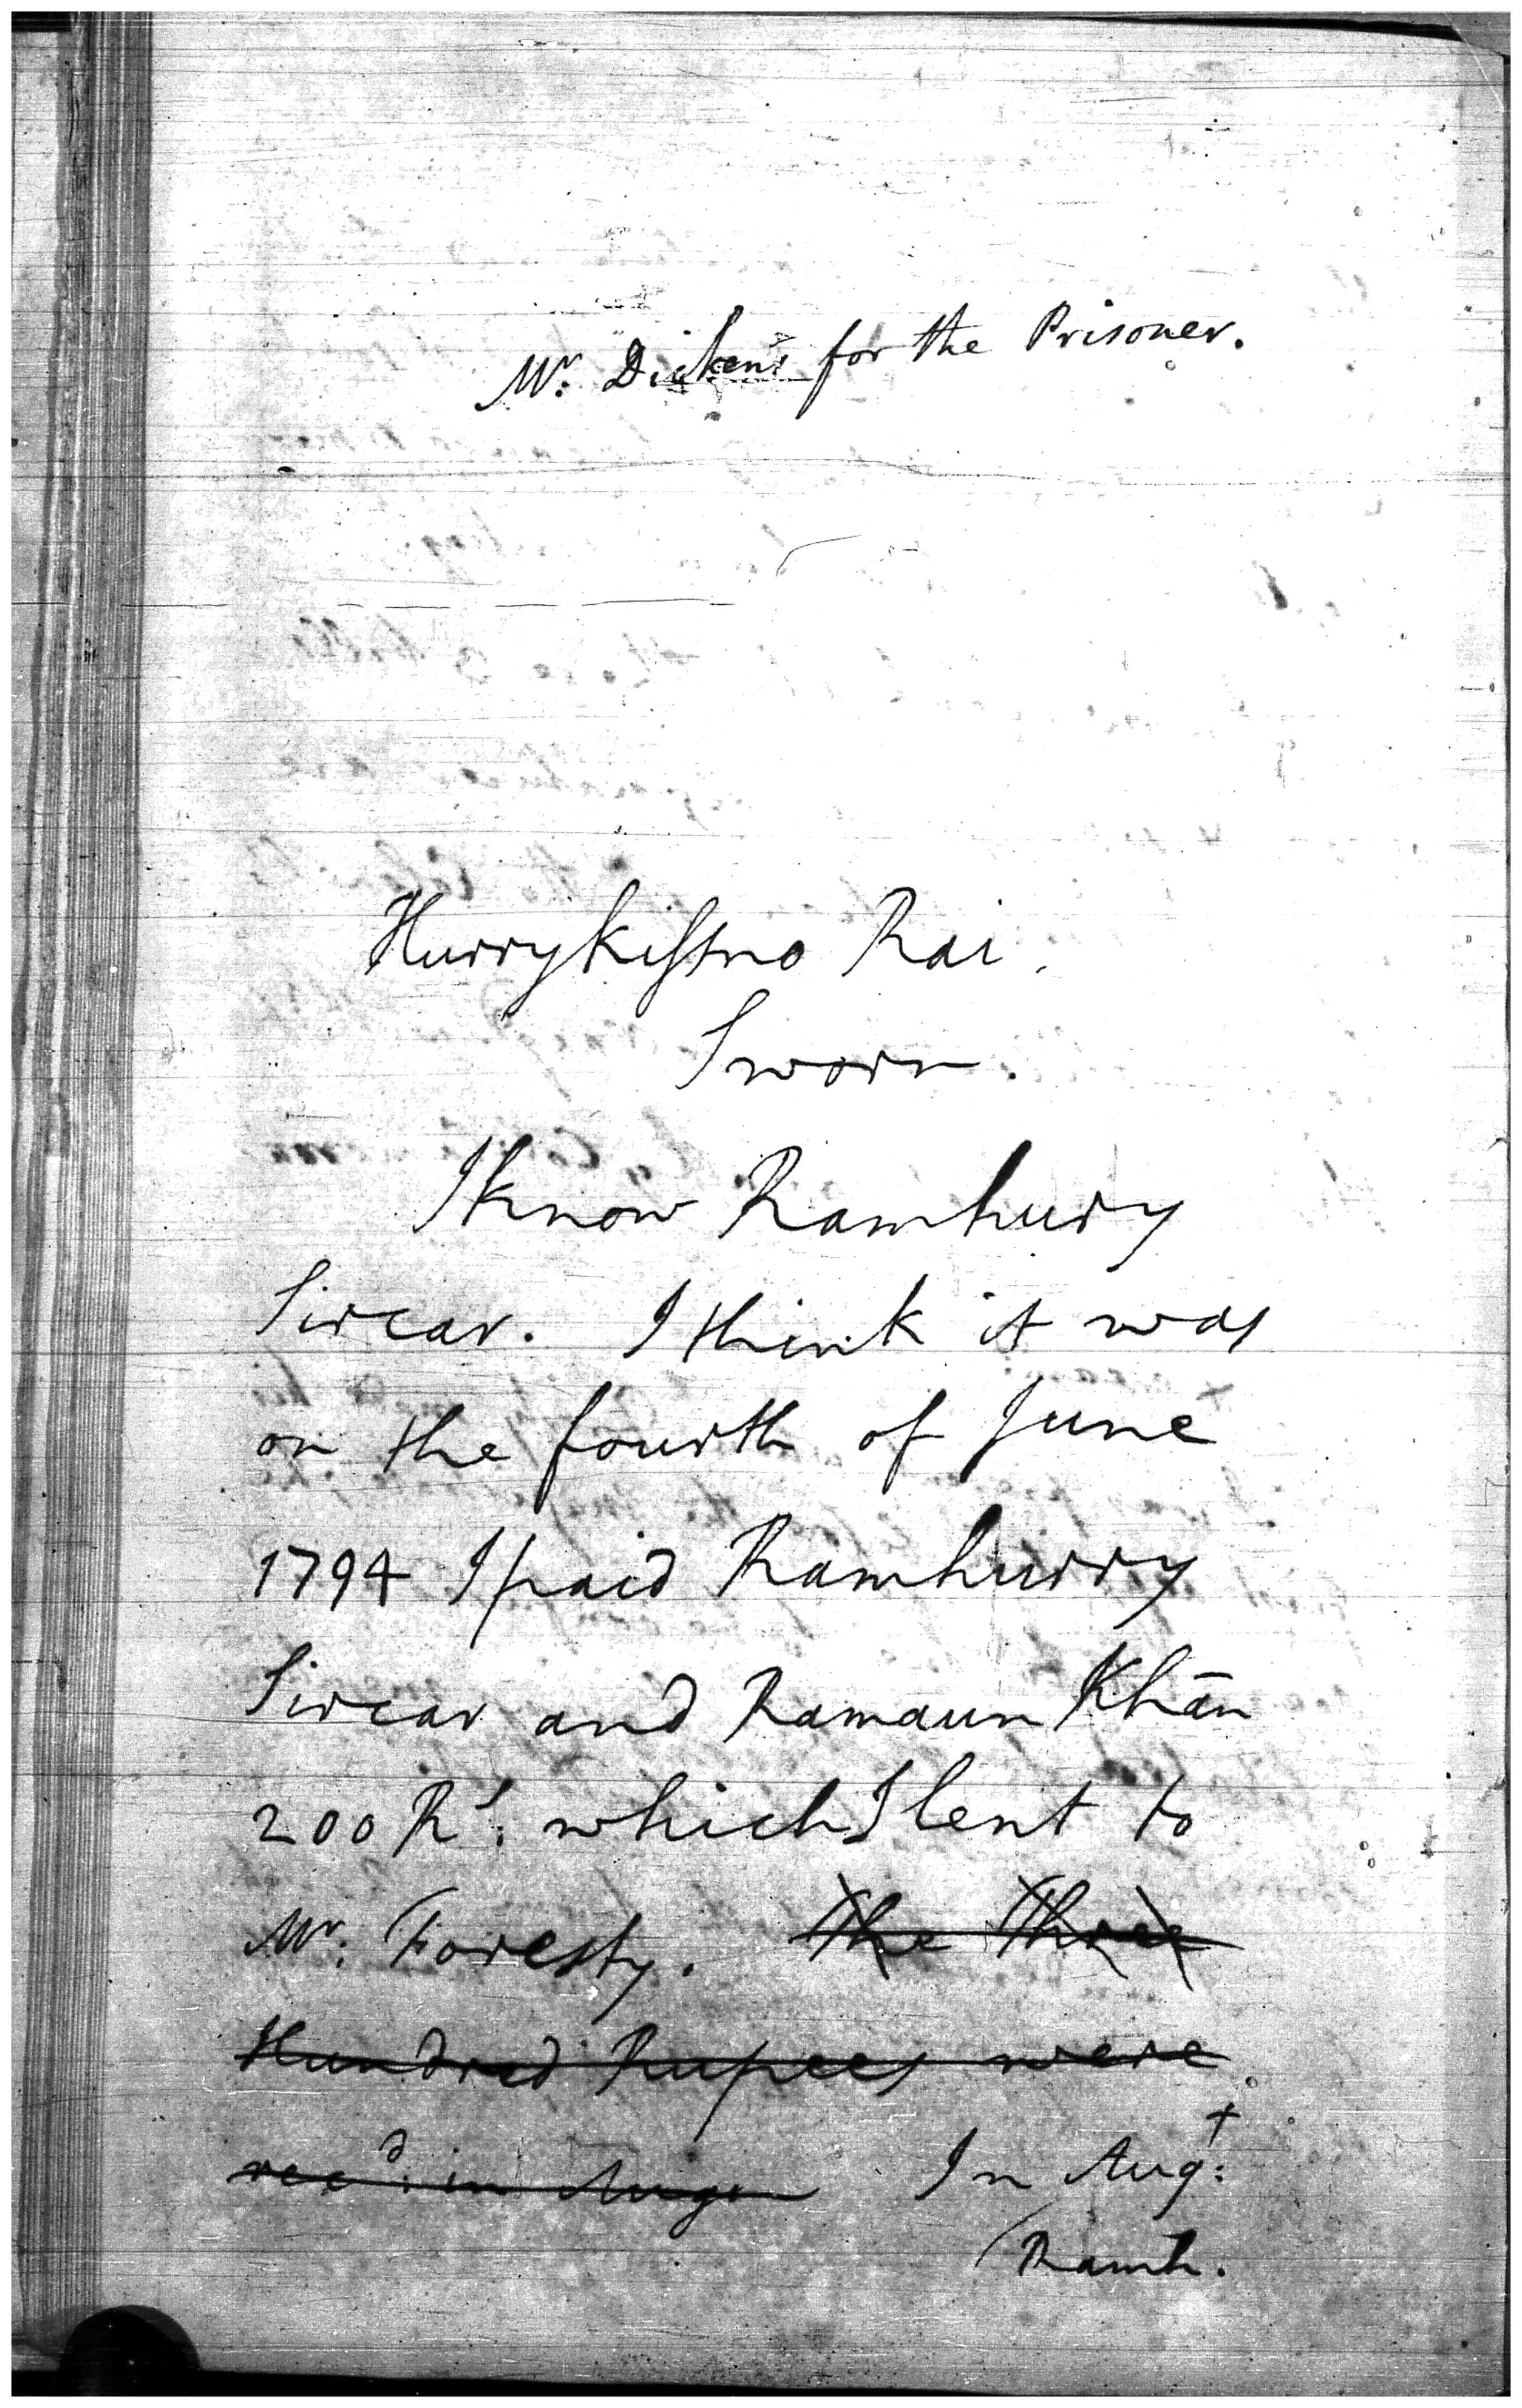 Mr. Dickens for the Prisoner.
Hurrykissno Rai.
Sworn.
I know Ramhury
Sircar. I think it was
on the fourth of June
1794 I paid Ramhurry
Sircar and Ramaun Khān
200 Rs. which I lent to
Mr. Foresty. The Three
Hundred Rupees were
recd. in Augt In Augt:
Ramh.